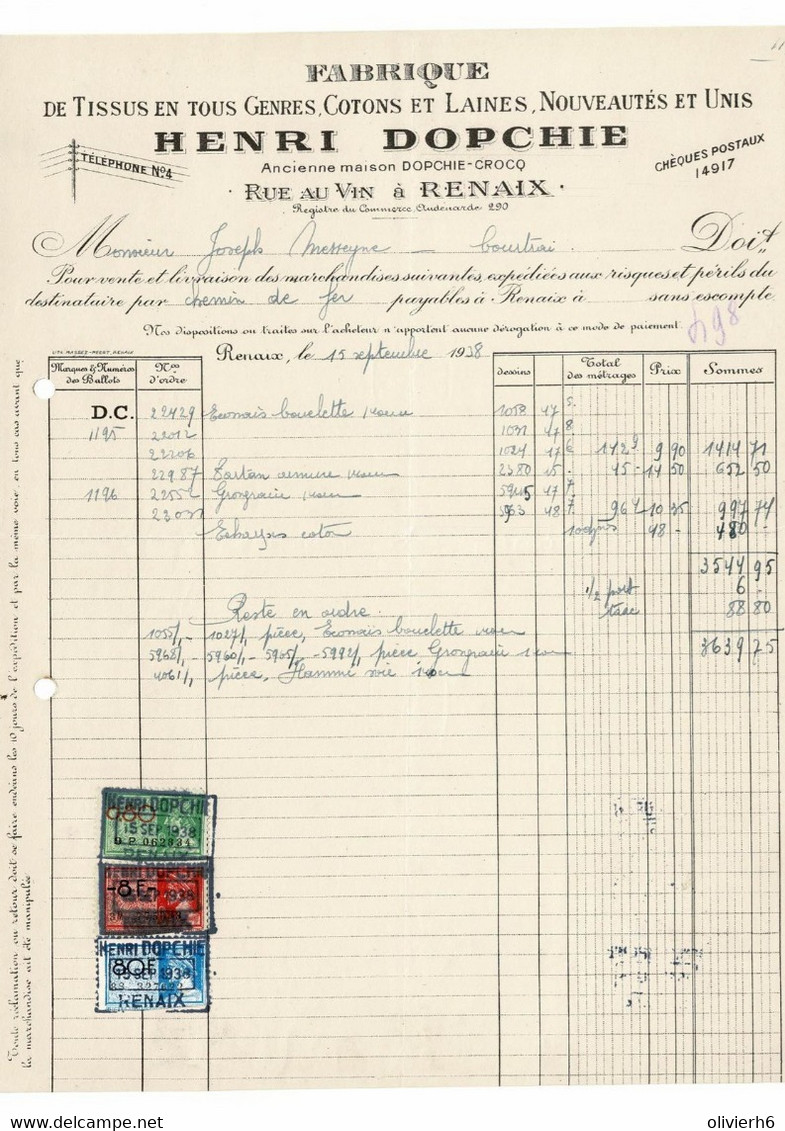 FABRIQUE
DE TISSUS EN TOUS GENRES, COTONS ET LAINES, NOUVEAUTÉS ET UNIS
HENRI DOPCHIE
TÉLÉPHONE No 4
Ancienne maison DOPCHIE-CROCQ
CHÈQUES POSTAUX
14917
· RUE AU VIN à RENAIX ·
Registre du Commerce, Audenarde 290
Monsieur Joseph Messeyne — Courtrai. Doit
Pour vente et livraison des marchandises suivantes, expédiées aux risques et périls du
destinataire par chemin de fer payables à Renaix à sans escompte
Nos dispositions ou traites sur l'acheteur n'apportent aucune dérogation à ce mode de paiement.
498
Renaix, le 15 septembre 1938
Marques & Numéros des Ballots Nos d'ordre dessins Total des métrages Prix Sommes
D.C. 22429 bouclette 1058 47 5
1195 22012 1031 47 8
22206 1024 47 6 142 9 9 90 1414 71
22987 Tartan armure 2380 45 - 45 - 14 50 652 50
1196 Grosgrain 5945 47 7
5963 48 7 96 4 10 35 997 74
Echarpes coton 48 - 480 -
3544 95
1/2 port 6 -
taxe 88 80
3639 75
Reste en ordre.
1055/, - 1027/, pièce, bouclette
5968/, - 5960/, - 5905/, - 5992/, pièce Grosgrain
4061/, pièce,
HENRI DOPCHIE
0.80
15 SEP 1938
D.P. 062834
RENAIX
HENRI DOPCHIE
-8F-
SEP 1938
HENRI DOPCHIE
80F
15 SEP 1938
RENAIX
Toute réclamation ou retour doit se faire endéans les 10 jours de l'expédition et par la même voie; en tous cas avant que
la marchandise ait été manipulée
olivierh6